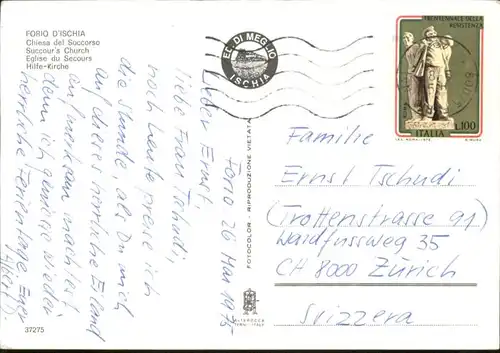 FORIO D'ISCHIA
Chiesa del Soccorso
Succour's Church
Eglise du Secours
Hilfe-Kirche
ED. DI MEGLIO
ISCHIA
TRENTENNALE DELLA
RESISTENZA
L.100
ITALIA
Forio 26 Mai 1975
Lieber Ernst
liebe Frau Tschudi,
noch heute preise ich
die Stunde, als Du mich
auf dieses herrliche Eiland
aufmerksam machtest
denn ich geniesse wieder
herrliche Ferientage. Euer
FOTOCOLOR RIPRODUZIONE VIETATA
Familie
Ernst Tschudi
(Trottenstrasse 91)
Waidfussweg 35
CH 8000 Zürich
Svizzera
37275